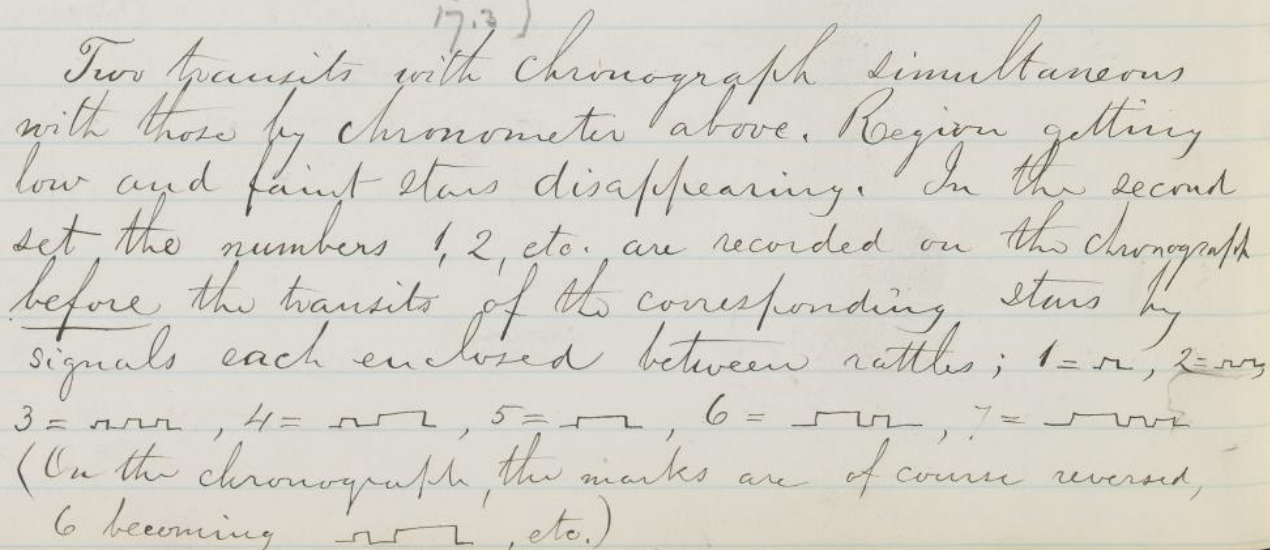 17.3)
Two transits with chronograph simultaneous
with those by chronometer above. Region getting
low and faint stars disappearing. In the second
set the numbers 1, 2, etc. are recorded on the chronograph
before the transits of the corresponding stars by
signals each enclosed between rattles; 1 = , 2 =
3 = , 4 = , 5 = , 6 = , 7 =
(On the chronograph, the marks are of course reversed,
6 becoming , etc.)